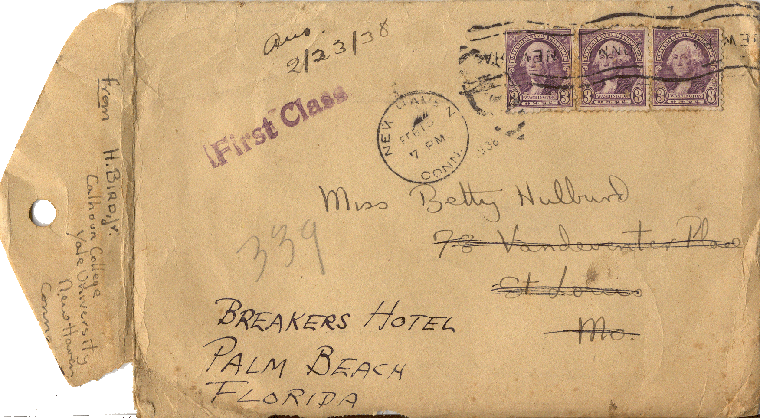 Ans.
2/23/38
First Class
NEW HAVEN
FEB
7 PM
CONN.
Miss Betty Hulburd
78 Vandeventer Place
St Louis
Mo.
339
BREAKERS HOTEL
PALM BEACH
FLORIDA
from H. BIRD, Jr.
Calhoun College
Yale University
New Haven
Conn.